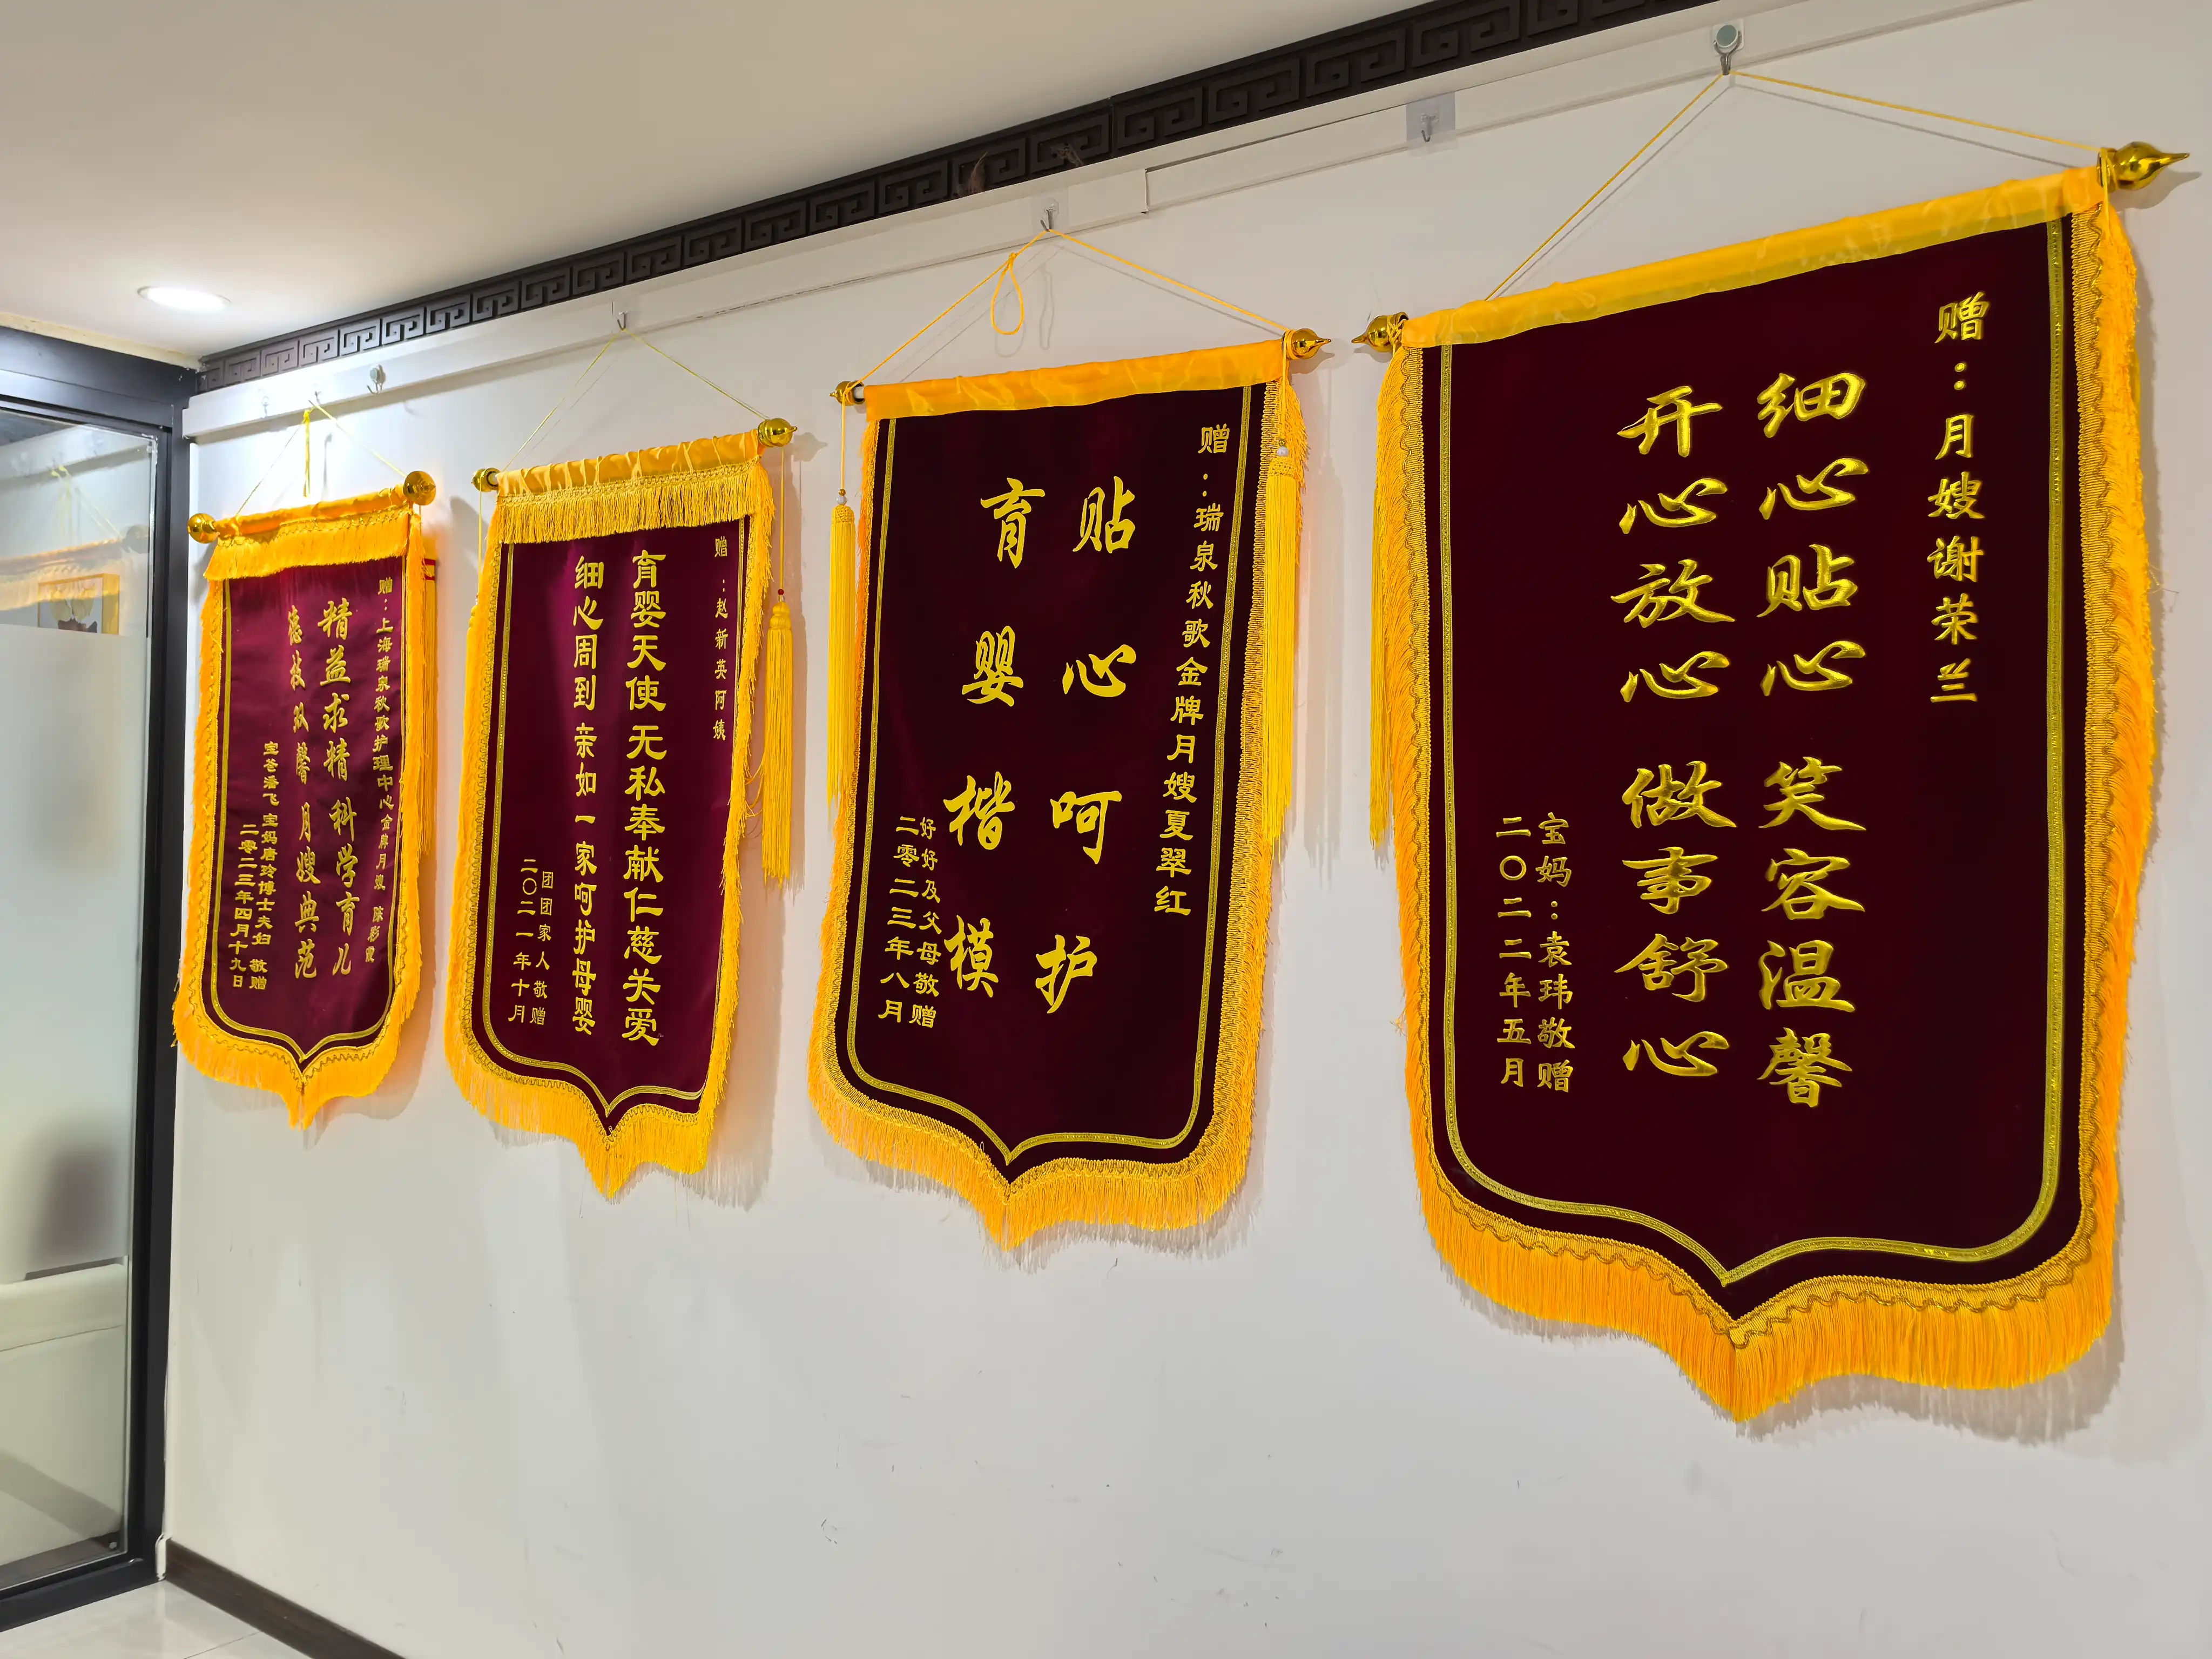 赠：上海瑞泉秋歌护理中心金牌月嫂 陈彩霞
精益求精 科学育儿
德技双馨 月嫂典范
宝爸潘飞 宝妈唐玲博士夫妇 敬赠
二零二三年四月十九日
赠：赵新英阿姨
育婴天使 无私奉献仁慈关爱
细心周到 亲如一家呵护母婴
团团家人敬赠
二〇二一年十月
赠：瑞泉秋歌金牌月嫂夏翠红
贴心呵护
育婴楷模
好好及父母敬赠
二零二三年八月
赠：月嫂谢荣兰
细心贴心 笑容温馨
开心放心 做事舒心
宝妈：袁玮敬赠
二〇二二年五月